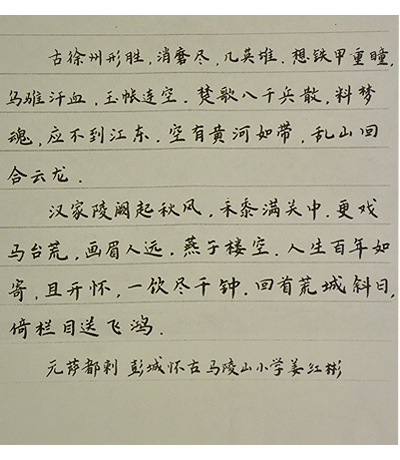 古徐州形胜，消磨尽，几英雄．想铁甲重瞳，
乌骓汗血，玉帐连空．楚歌八千兵散，料梦
魂，应不到江东．空有黄河如带，乱山回
合云龙．
汉家陵阙起秋风，禾黍满关中．更戏
马台荒，画眉人远，燕子楼空．人生百年如
寄，且开怀，一饮尽千钟．回首荒城斜日，
倚栏目送飞鸿．
元萨都剌 彭城怀古 马陵山小学姜红彬